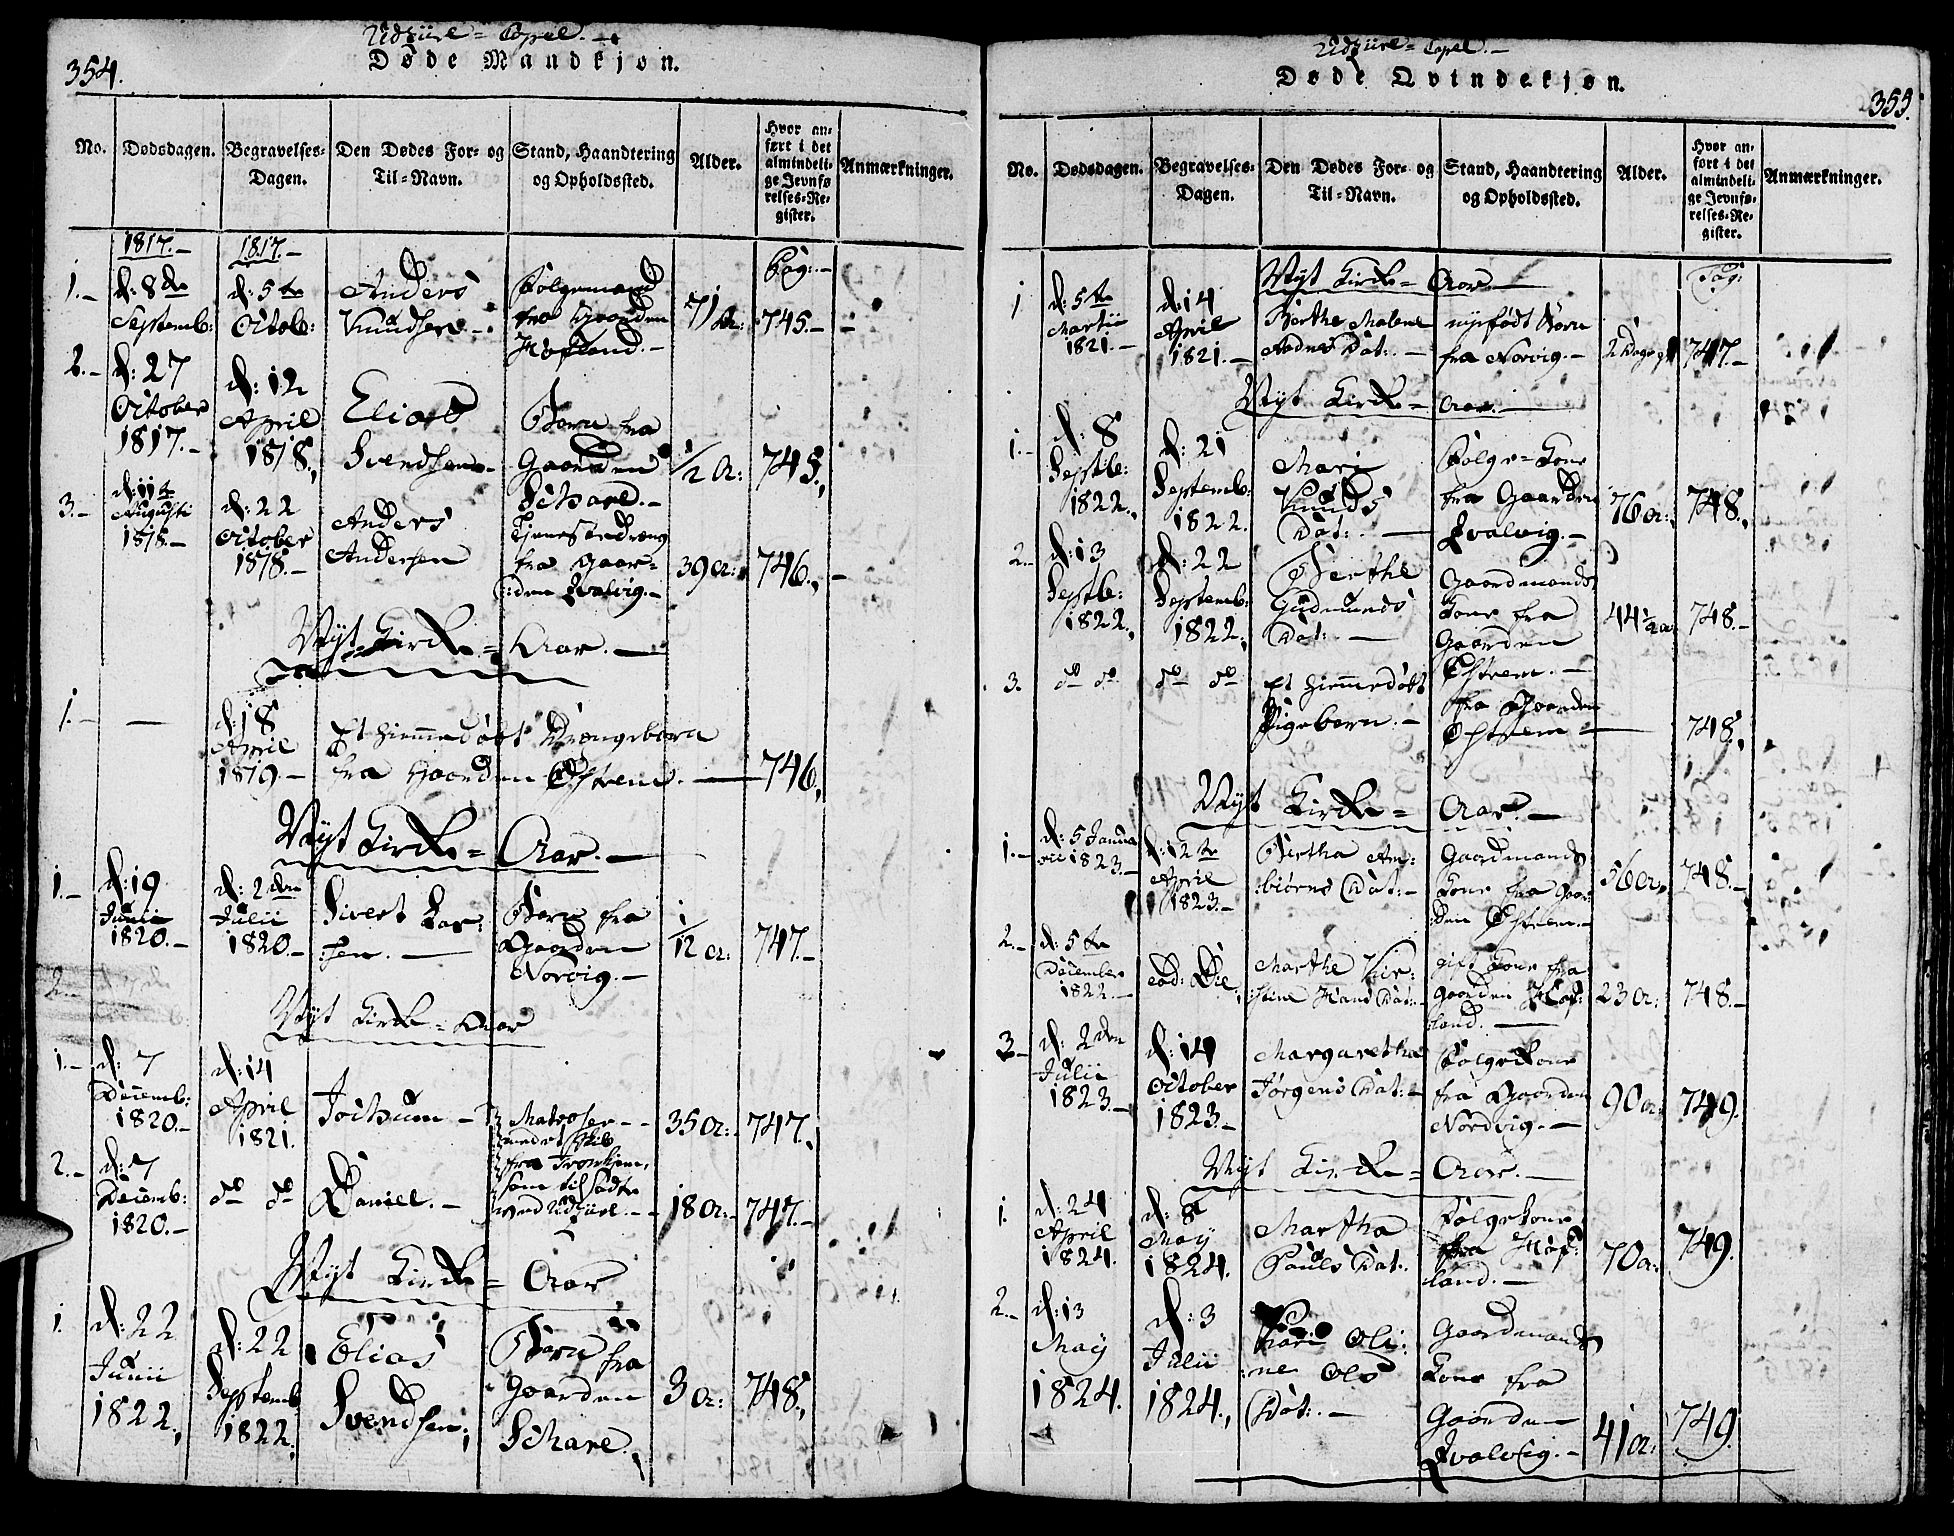 354.
Udziire = Capel. —
Døde Mandkjøn.
No.
Dødsdagen.
Begravelses-
Dagen.
Den Dødes For- og
Til-Navn.
Stand, Haandtering
og Opholdssted.
Alder.
Hvor an-
ført i det
almindeli-
ge Jevnfø
relses-Re-
gister.
Anmærkninger.
1817.—
1817.—
Pag:—
1.—
d: 8de
Septemb:
d: 5te
Octob:
Anders
Knudsen.—
Følgemand
fra Gaarden
Hofland.—
71 Ar:
745.—
2.—
d: 27
October
1817.—
d: 12
April
1818.,
Eliас
Svendsen—
Barn fra
Gaarden
Schare.—
1/2 A:
745.,
3.—
d: 11te
Augusti
1818.—
d: 22
October
1818.—
Anders
Andersen
Tjenestedreng
fra Gaar-
:den Qvalvig.—
39 a:
746.,
Nyt Kirke = Aar.—
1.—
—
d: 18
April
1819.—
Et hiemmedøbt Drengebarn
fra Gaarden Østrem.—
746.,
Nyt Kirke = Aar.—
1.—
d: 19
Junii
1820.—
d: 2den
Julii
1820.—
Sivert Lar-
:sen.—
Barn fra
Gaarden
Norvig.—
1/12 a:
747.—
2.—
Nyt Kirke = Aar
1.—
d: 7
Decemb:
1820.—
d: 14
April
1821.
Jochum—
Matroser—
med et Skib
fra Tronhjem,
som til satte
ved Udziire.—
35 a:
747.,
2.—
d: 7
Decemb:
1820.—
do do
Daniell.—
18 a:
747.—
Nyt Kirke = Aar,
1.
d: 22
Junii
1822.,
d: 22
Septemb
1822.
Elias
Svendsen,
Barn
fra
Gaarden
Schare.
3 a:
748.,
Udziire = Capel.—
Døde Qvindekjøn.
355.
No.
Dødsdagen.
Begravelses-
Dagen.
Den Dødes For- og
Til-Navn.
Stand, Haandtering
og Opholdssted.
Alder.
Hvor an-
ført i det
almindeli-
ge Jevnfø-
relses-Re-
gister.
Anmærkninger.
Nyt Kirke = Aar—
Pag:
1
d: 5te
Martii
1821.—
d: 14
April
1821.—
Berthe Malene
Aadnes Dat:.—
nyfødt Barn
fra Norvig.—
2 Dage g:
747.—
Nyt Kirke = Aar.—
1.—
d: 8
Septb:
1822.,
d: 21
Septemb:
1822.
Mari
Knuds
Dat:.—
Følge=Kone
fra Gaarden
Qvalvig.—
76 a:
748.,
2.—
d: 13
Septb:
1822.,
d: 22
Septemb:
1822.,
Berthe
Gudmunds
Dat:.—
Gaardmands
Kone fra
Gaarden
Østrem.—
44 1/2 a:
748.—
3.
do do
do do
Et hiemmedøbt
Pigebarn.—
fra Gaarden
Østrem—
748.,
Nyt Kirke = Aar.—
1.—
d: 5 Janua
rii 1823.—
d: 12te
April
1823.—
Bertha As-
:biørns Dat:—
Gaardmands
Kone fra Gaar:
:den Østrem.—
56 a:
748.—
2.—
d: 5te
December
1822.—
eod: Die,
Marthe Kir:
stine Hans Dat:
gift Kone fra
gaarden Hof:
land.—
23 a:
748.—
3—
d: 2den
Julii
1823.—
d: 14
October
1823.—
Margaretha
Jørgens Dat:—
Følgekone
fra Gaarden
Nordvig.—
90 a:
749.
Nyt Kirke = Aar.—
1.
d: 24
April
1824.
d: 8
May
1824.
Martha
Pauls Dat:.
Følgekone
fra Hof:
land.—
70 a:
749.
2.—
d: 13
May
1824.
d: 3
Julii
1824.,
Kari Oli:
:ne Ols
Dat:.—
Gaardmands
Kone fra
Gaarden
Qvalvig.—
41 a:
749.